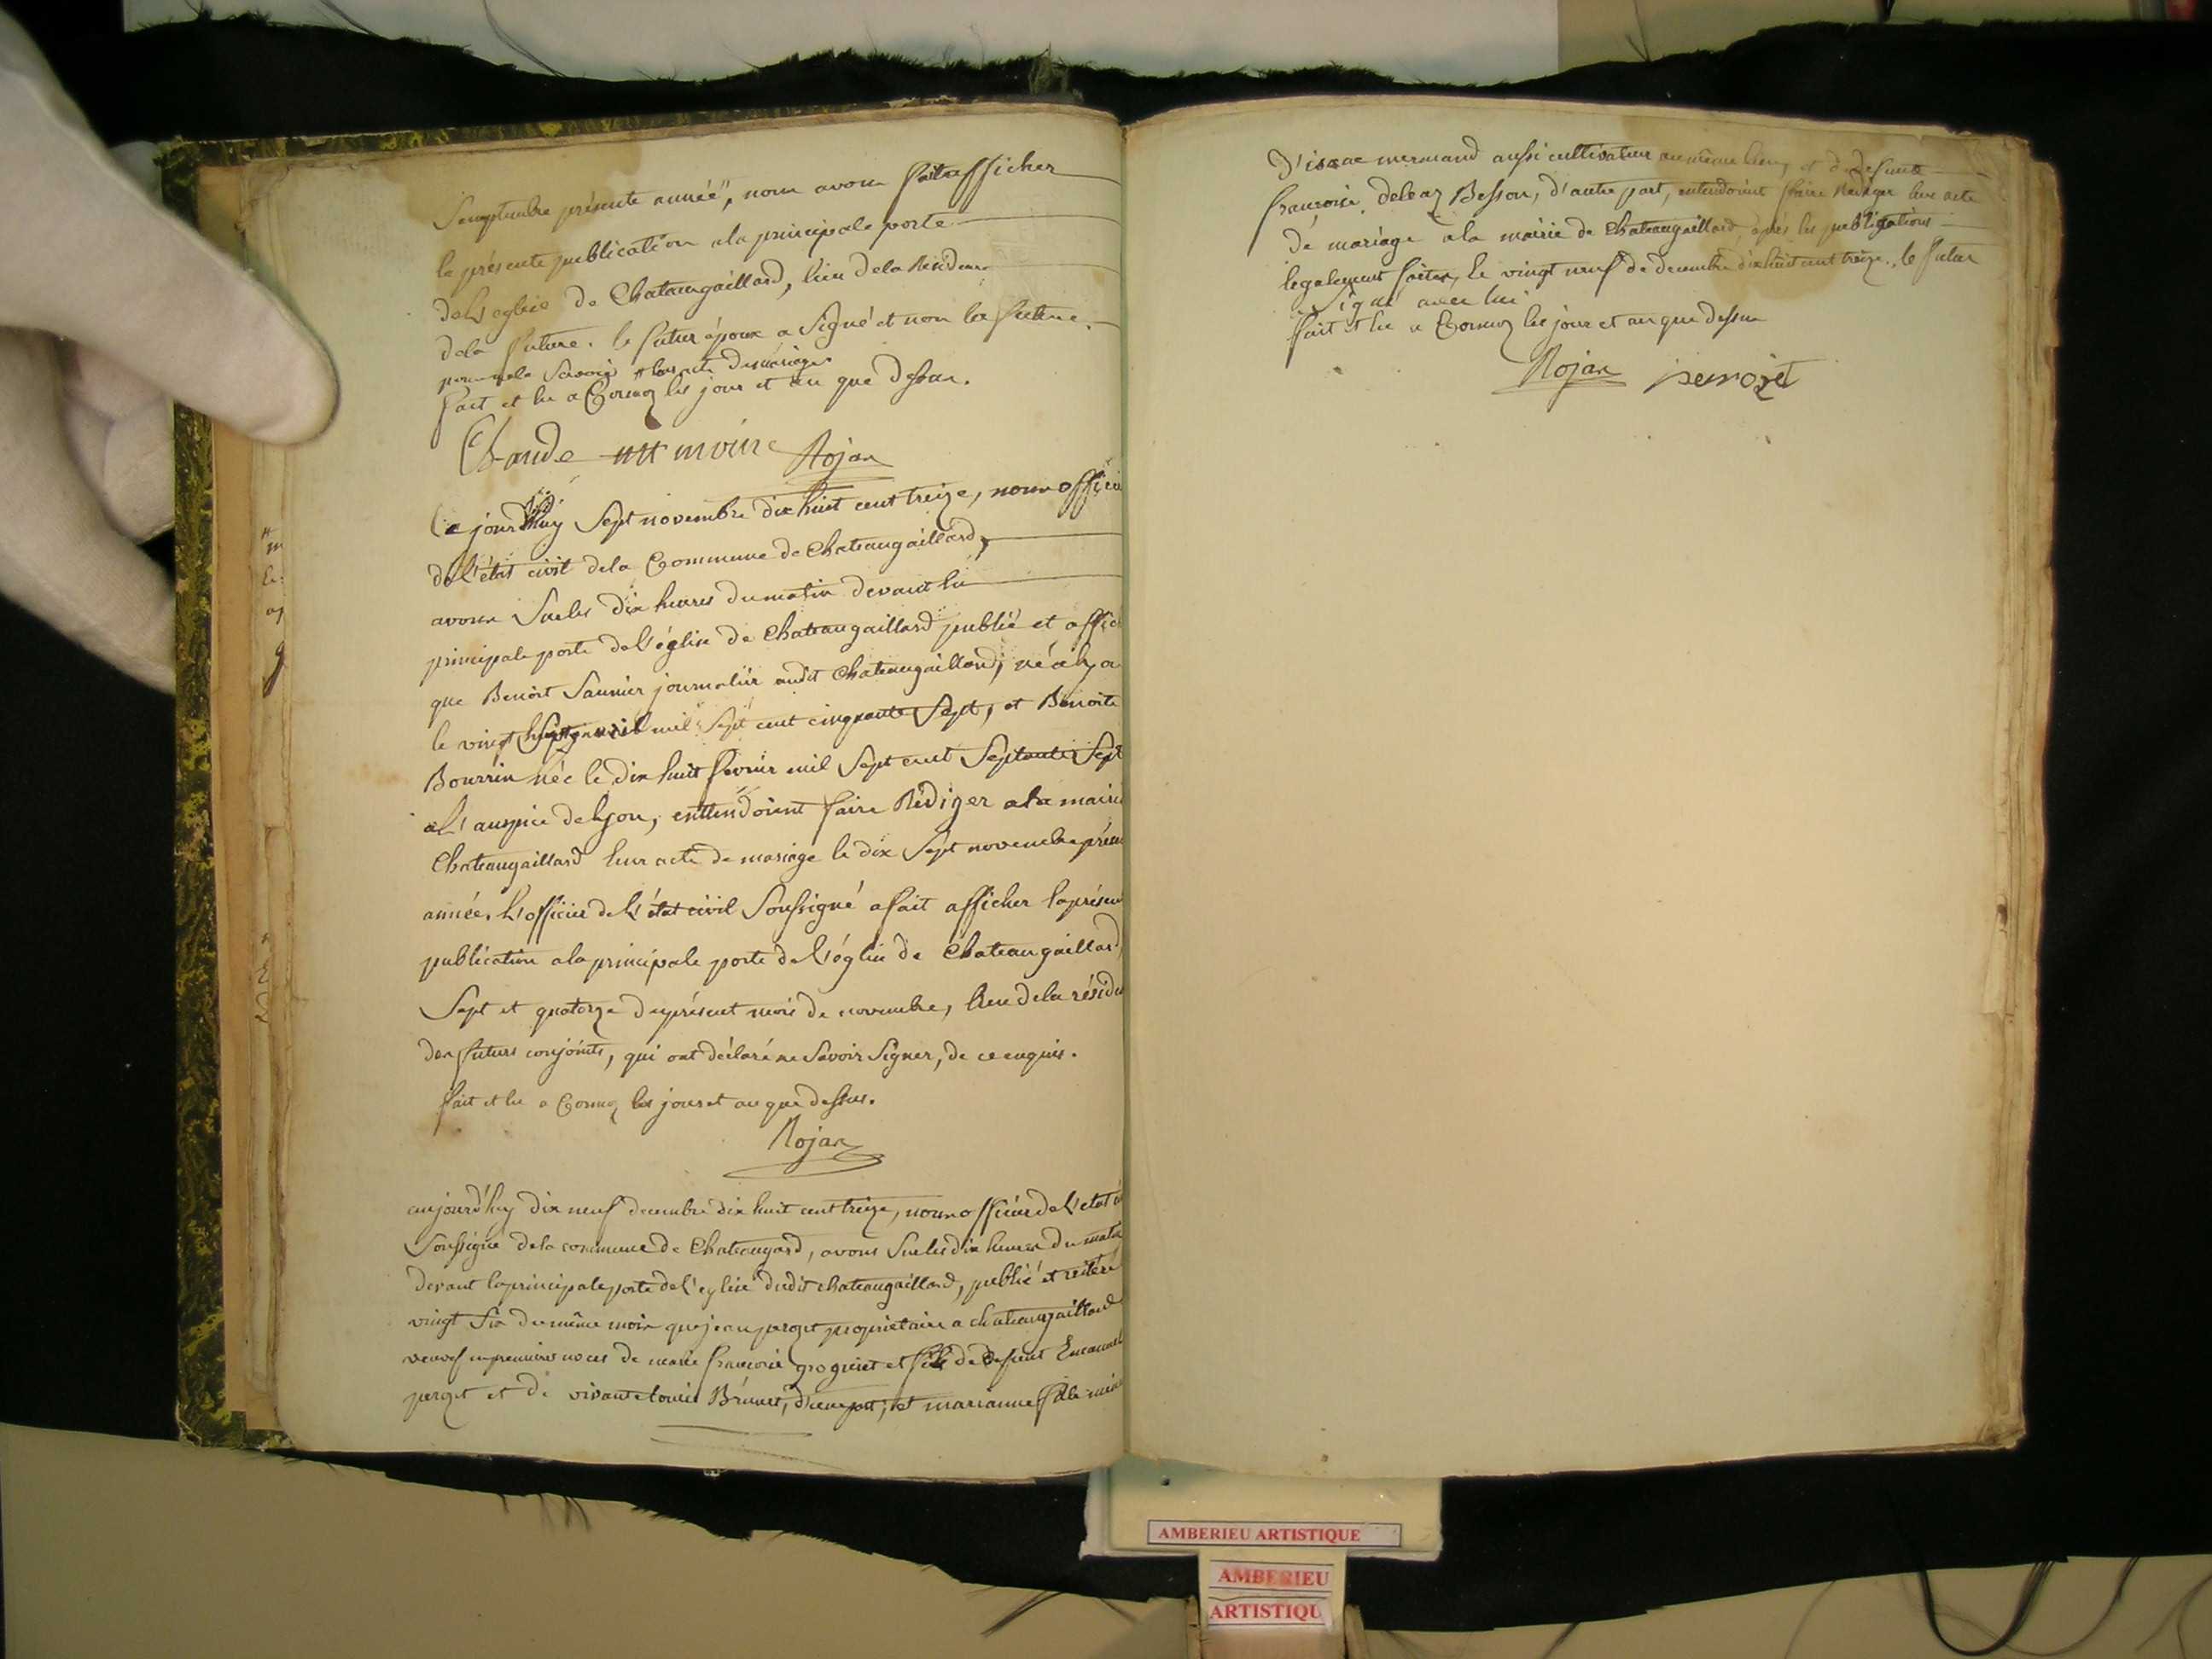 Semptembre présente année", nous avons fait afficher
la présente publication a la principale porte
de l'eglise de Chateaugaillard, lieu de la Residence
de la future. le futur époux a Signé et non la future.
pour ne le Savoir # leur acte de mariage
fait et lu a Cormoz les jour et an que dessus.
Claude Rojan
Ce jourd'huy Sept novembre dix huit cent treize, nous offici
de l'état civil de la Commune de Chateaugaillard,
avons Sur les dix heures du matin devant la
principale porte de l'église de Chateaugaillard publié et affic
que Benoit Saunier journalier audit Chateaugaillard, né a
le vingt avril mil Sept cent cinquante Sept, et Benoite
Bourrin née le dix huit fevrier mil Sept cent Septante Sept
a l'auspice de Lyon, enttendoient faire Rédiger a la mairie
Chateaugaillard leur acte de mariage le dix Sept novembre présen
année. L'officier de l'état civil Soussigné a fait afficher la présen
publication a la principale porte de l'église de Chateaugaillard,
Sept et quatorze du présent mois de novembre, lieu de la réside
des futurs conjoints, qui ont déclaré ne Savoir Signer, de ce enquis.
fait et lu a Cormoz les jour et an que dessus.
Rojan
aujourd'huy dix neuf decembre dix huit cent treize, nous officier de l'etat ci
Soussigné de la commune de Chateaugard, avons Sur les dix heures du matin
devant la principale porte de l'eglise dudit chateaugaillard, publié et reiteré
vingt Six du même mois que jean perozet propriétaire a chateaugaillard
veuf en premieres noces de marie francoise groguiet et fils de defunt Emanuel
perozet et de vivante Louise Brunet, d'une part; et marianne fille mine
d'isaac mermand aussi cultivateur au même lieu, et de defunte
francoise Besson, d'autre part, entendoient faire Rediger leur acte
de mariage a la mairie de Chateaugaillard, après les publications
legalement faites, le vingt neuf de decembre dix huit cent treize., le futur
Signé avec lui
fait et lu a Cormoz les jour et an que dessus
Rojan perrozet
AMBERIEU ARTISTIQUE
AMBERIEU
ARTISTIQU